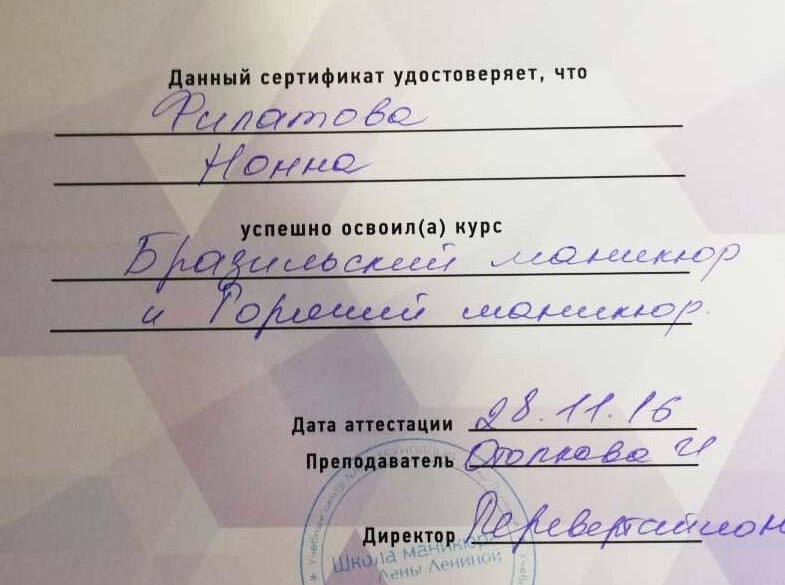 Данный сертификат удостоверяет, что
Филатова
Нонна
успешно освоил(а) курс
Бразильский маникюр
и Горячий маникюр.
Дата аттестации 28.11.16
Преподаватель И
Директор
Школа маникюра
Лены Лениной